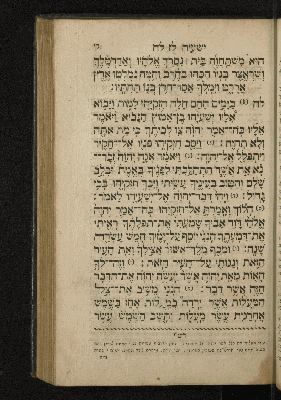 ישעיה לז לח
הוא משתחוה בית ׀ נסרך אלהיו ואדרמלך
ושראצר בניו הכהו בחרב והמה נמלטו ארץ
אררט וימלך אסר־חדן בנו תחתיו׃
לח בימים ההם חלה חזקיהו למות ויבוא
אליו ישעיהו בן־אמוץ הנביא ויאמר
אליו כה־אמר יהוה צו לביתך כי מת אתה
ולא תחיה׃ ויסב חזקיהו פניו אל־הקיר
ויתפלל אל־יהוה׃ ויאמר אנה יהוה זכר־
נא את אשר התהלכתי לפניך באמת ובלב
שלם והטוב בעיניך עשיתי ויבך חזקיהו בכי
גדול׃ ויהי דבר־יהוה אל־ישעיהו לאמר׃
הלוך ואמרת אל־חזקיהו כה־אמר יהוה
אלהי דוד אביך שמעתי את־תפלתך ראיתי
את־דמעתך הנני יוסף על־ימיך חמש עשרה
שנה׃ ומכף מלך־אשור אצילך ואת העיר
הזאת וגנותי על־העיר הזאת׃ וזה־לך
האות מאת יהוה אשר יעשה יהוה את־הדבר
הזה אשר דבר׃ הנני משיב את־צל
המעלות אשר ירדה במעלות אחז בשמש
אחרנית עשר מעלות ותשב השמש עשר